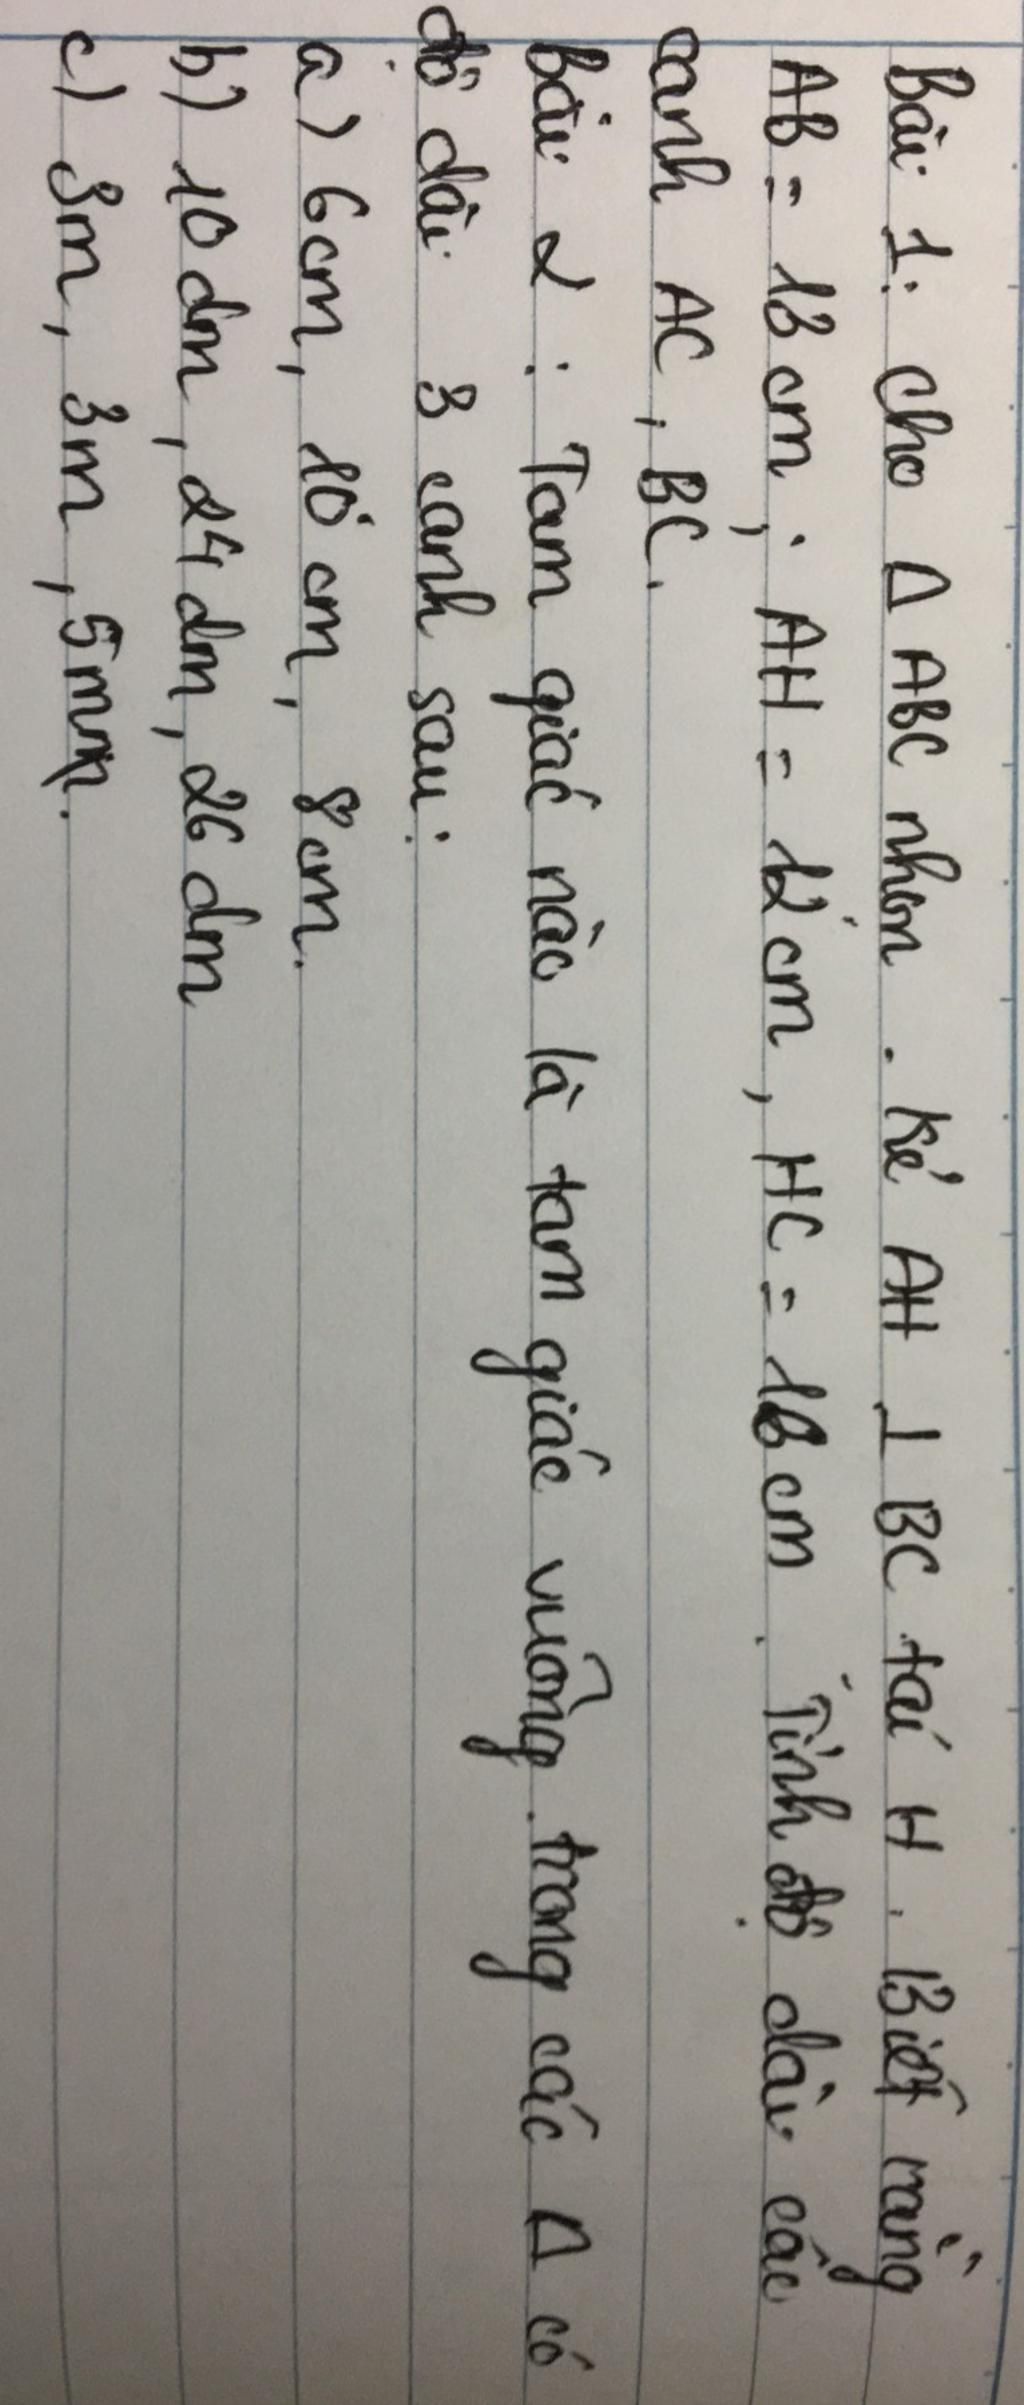 Bài 1: Cho Δ ABC nhọn. Kẻ AH ⊥ BC tại H. Biết rằng
AB = 13 cm; AH = 12 cm, HC = 16 cm. Tính độ dài các
cạnh AC, BC.
Bài 2: Tam giác nào là tam giác vuông trong các Δ có
độ dài 3 cạnh sau:
a) 6cm, 10 cm, 8cm.
b) 10 dm, 24 dm, 26 dm
c) 3m, 3m, 5m.